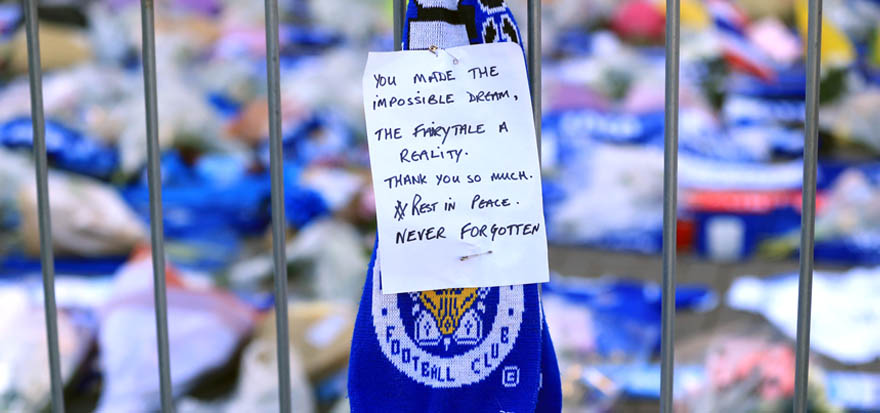 YOU MADE THE
IMPOSSIBLE DREAM,
THE FAIRYTALE A
REALITY.
THANK YOU SO MUCH.
REST IN PEACE.
NEVER FORGOTTEN
FOOTBALL CLUB